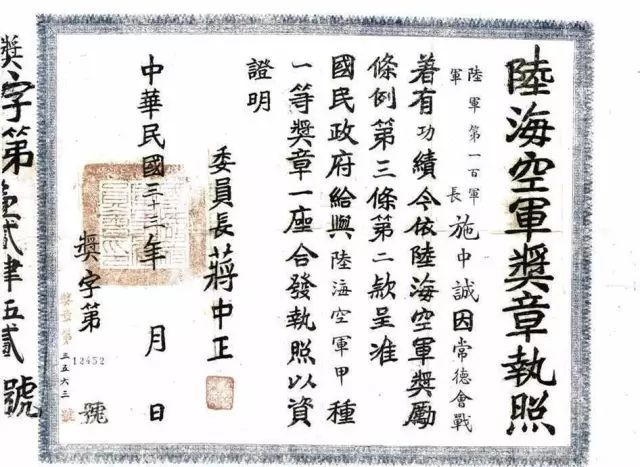 陸海空軍獎章執照
陸軍第一百軍
軍長施中誠因常德會戰
著有功績今依陸海空軍獎勵
條例第三條第二款呈准
國民政府給與陸海空軍甲種
一等獎章一座合發執照以資
證明
委員長蔣中正
中華民國三十三年 月 日
獎字第 12452 號
獎字第壹貳肆五貳號